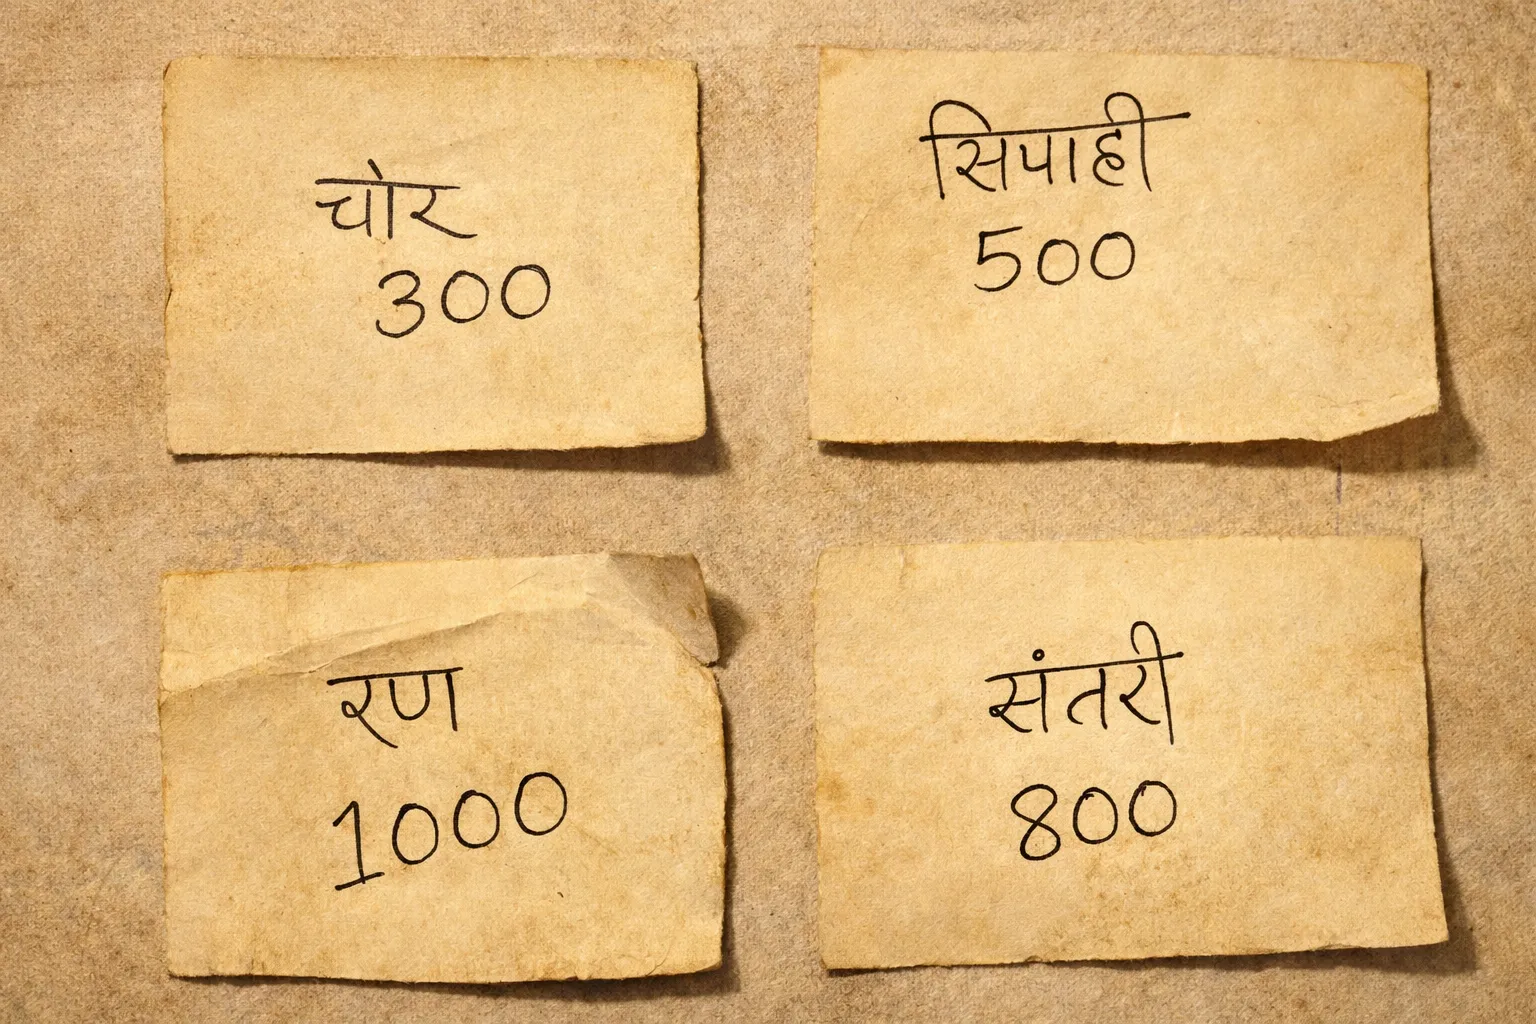 चोर
300
सिपाही
500
रण
1000
संतरी
800